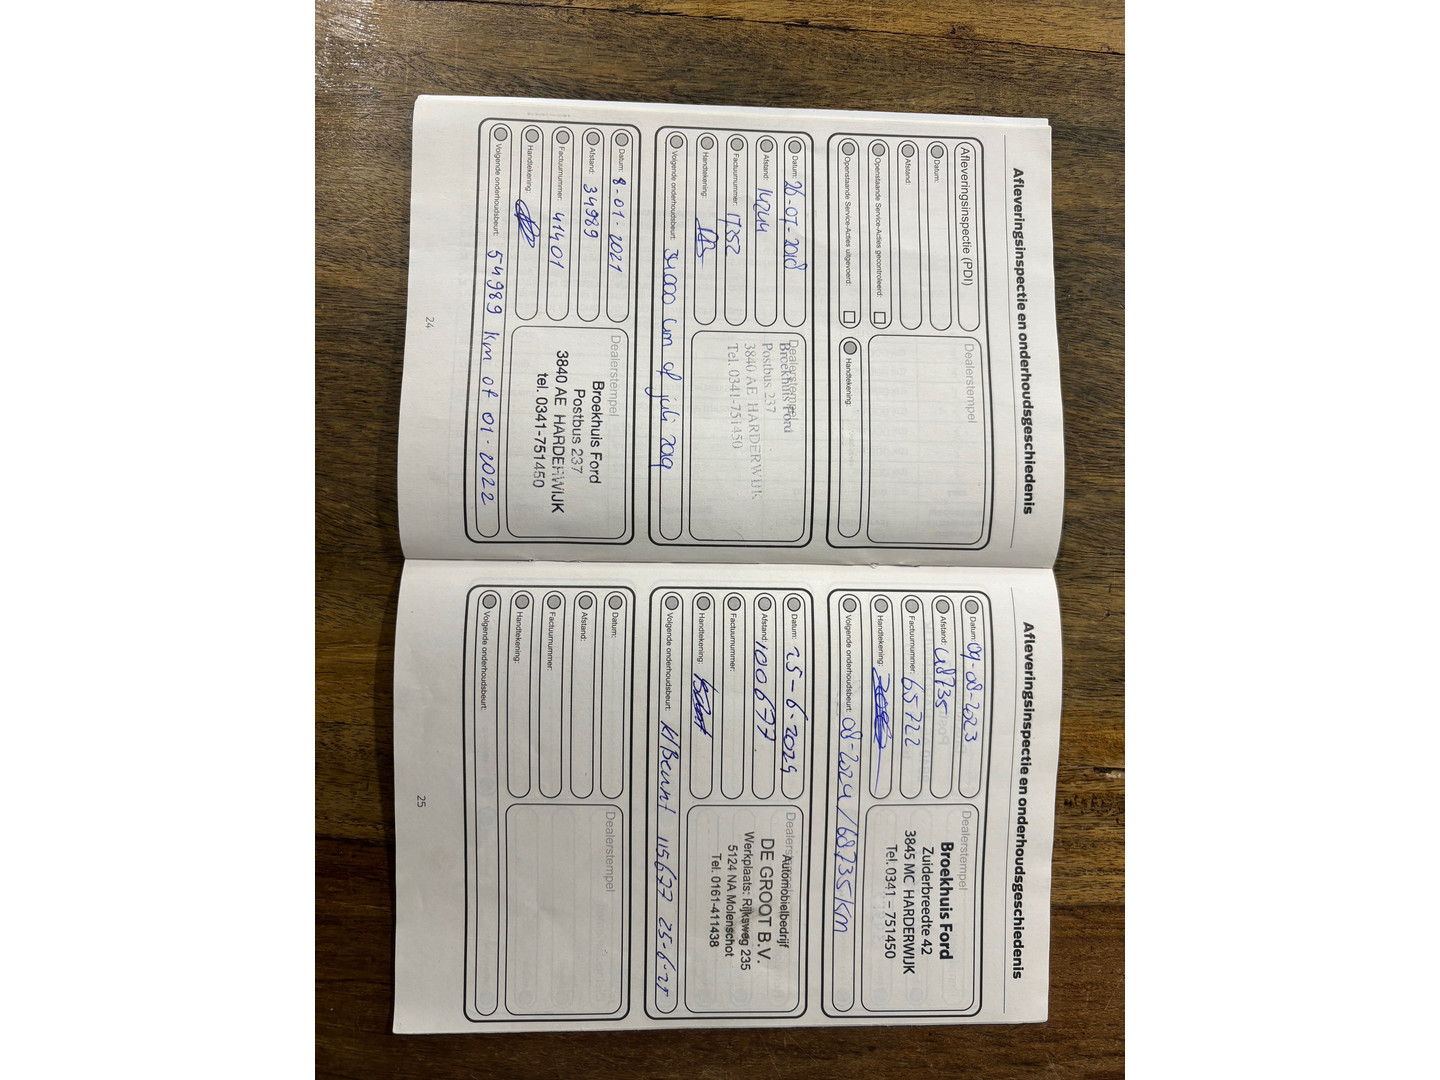 Afleveringsinspectie en onderhoudsgeschiedenis
Afleveringsinspectie (PDI)
Datum:
Afstand:
Openstaande Service-Acties gecontroleerd:
Openstaande Service-Acties uitgevoerd:
Dealerstempel
Handtekening:
Datum: 26-07-2018
Afstand: 14244
Factuurnummer: 17352
Handtekening:
Volgende onderhoudsbeurt: 34000 km of juli 2019
Dealerstempel
Broekhuis Ford
Postbus 237
3840 AE HARDERWIJK
Tel. 0341-751450
Datum: 8-01-2021
Afstand: 34989
Factuurnummer: 41401
Handtekening:
Volgende onderhoudsbeurt: 54989 km of 01-2022
Dealerstempel
Broekhuis Ford
Postbus 237
3840 AE HARDERWIJK
tel. 0341-751450
24
Afleveringsinspectie en onderhoudsgeschiedenis
Datum: 09-08-2023
Afstand: 48735
Factuurnummer: 65722
Handtekening:
Volgende onderhoudsbeurt: 08-2024/68735km
Dealerstempel
Broekhuis Ford
Zuiderbreedte 42
3845 MC HARDERWIJK
Tel. 0341 – 751450
Datum: 25-6-2024
Afstand: 100677
Factuurnummer:
Handtekening:
Volgende onderhoudsbeurt: Kl Beurt 115677 25-6-25
Dealerstempel
Automobielbedrijf
DE GROOT B.V.
Werkplaats: Rijksweg 235
5124 NA Molenschot
Tel. 0161-411438
Datum:
Afstand:
Factuurnummer:
Handtekening:
Volgende onderhoudsbeurt:
Dealerstempel
25